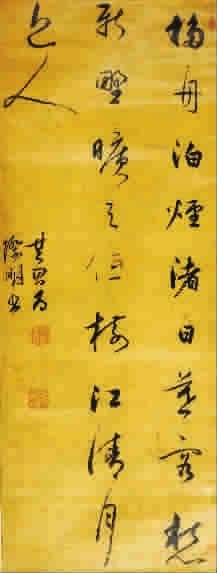 移舟泊煙渚日暮客愁
新野曠天低樹江清月
近人
明書